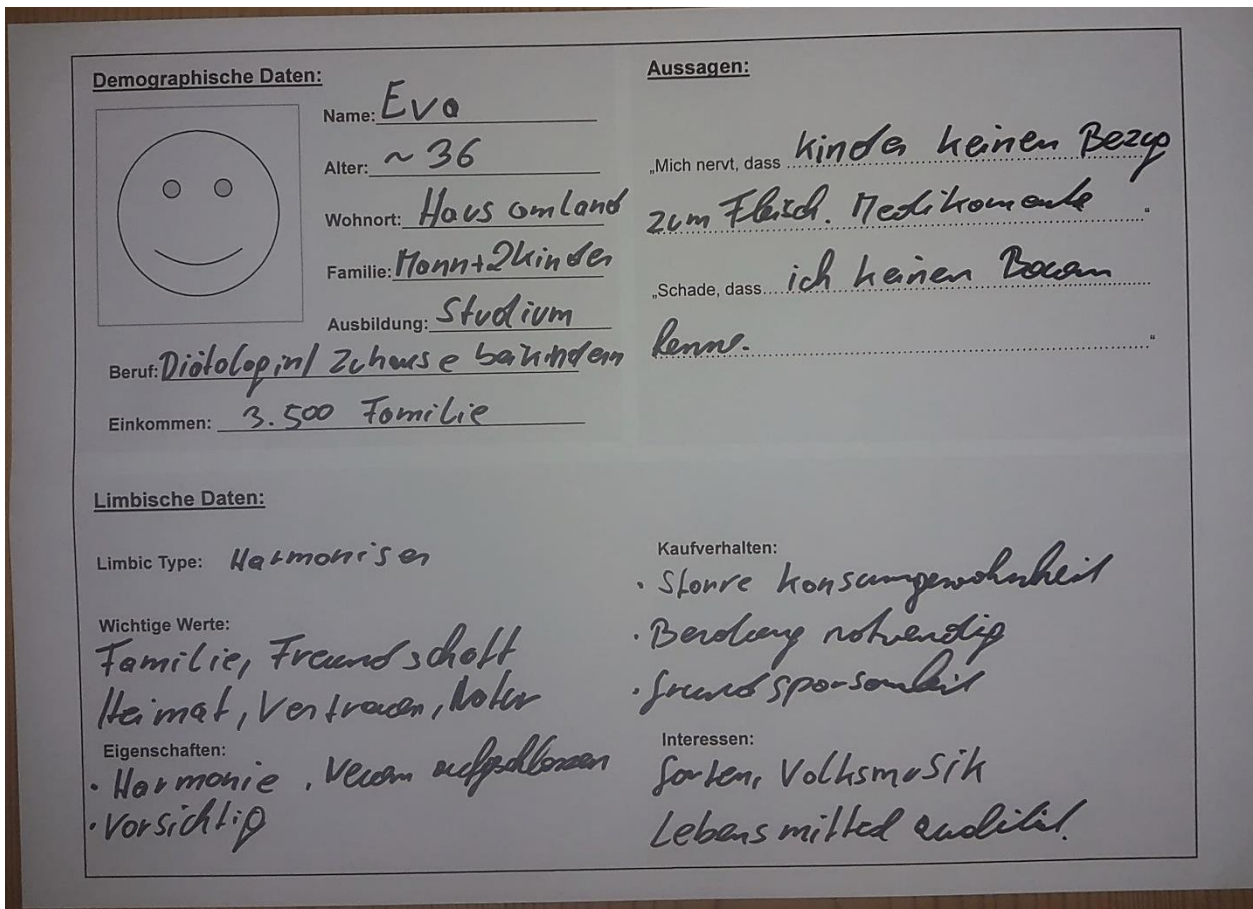 Demographische Daten:
Name: Eva
Alter: ~ 36
Wohnort: Haus am Land
Familie: Mann + 2 Kinder
Ausbildung: Studium
Beruf: Diätologin / Zuhause bei Kindern
Einkommen: 3.500 Familie
Aussagen:
„Mich nervt, dass Kinder keinen Bezug
zum Fleisch. Medikamente “
„Schade, dass ich keinen Bauern
kenne. “
Limbische Daten:
Limbic Type: Harmoniser
Wichtige Werte:
Familie, Freundschaft
Heimat, Vertrauen, Natur
Eigenschaften:
· Harmonie, aufgeschlossen
· Vorsichtig
Kaufverhalten:
· Starre Konsumgewohnheit
· Beratung notwendig
· Grundsparsamkeit
Interessen:
Garten, Volksmusik
Lebensmittel